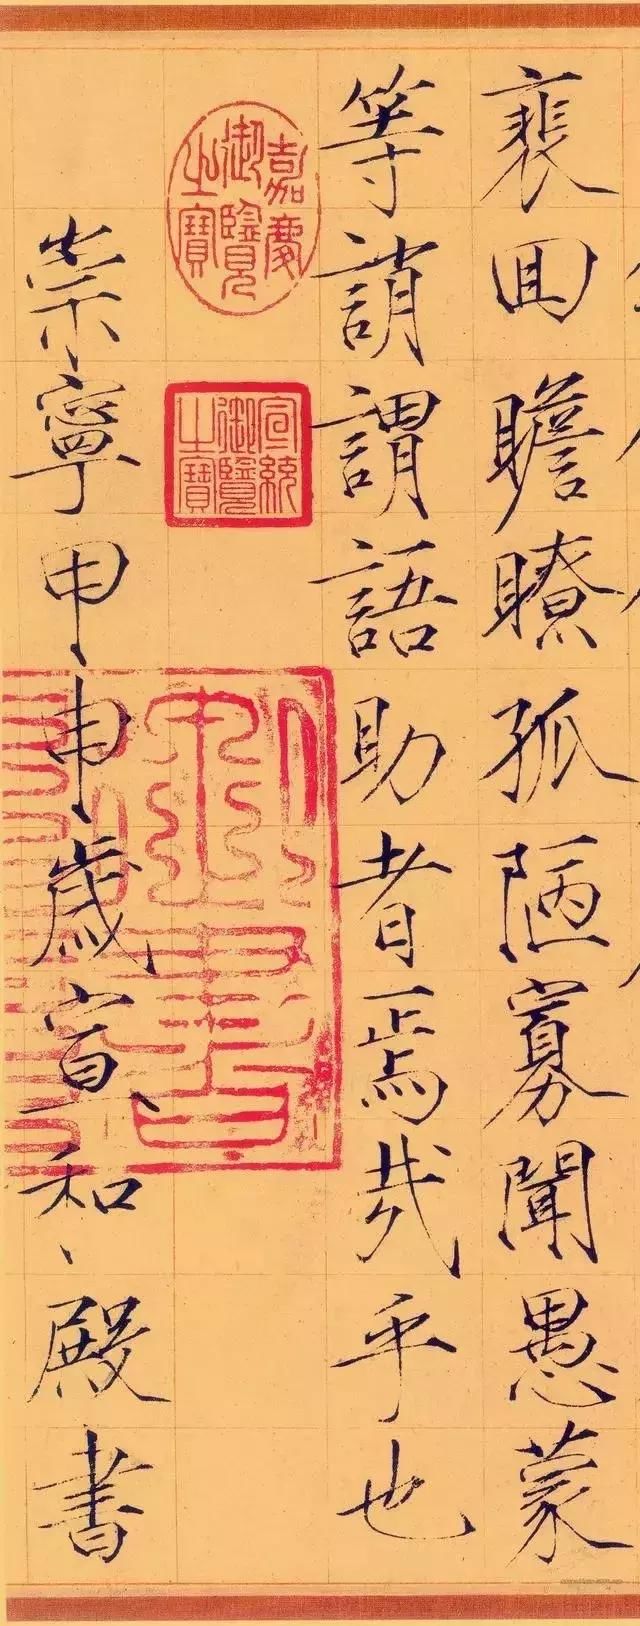 裵囬瞻瞭孤陋寡聞愚蒙
等誚謂語助者焉哉乎也
嘉慶御覽之寶
宣統御覽之寶
御書
崇寧甲申歲宣和殿書